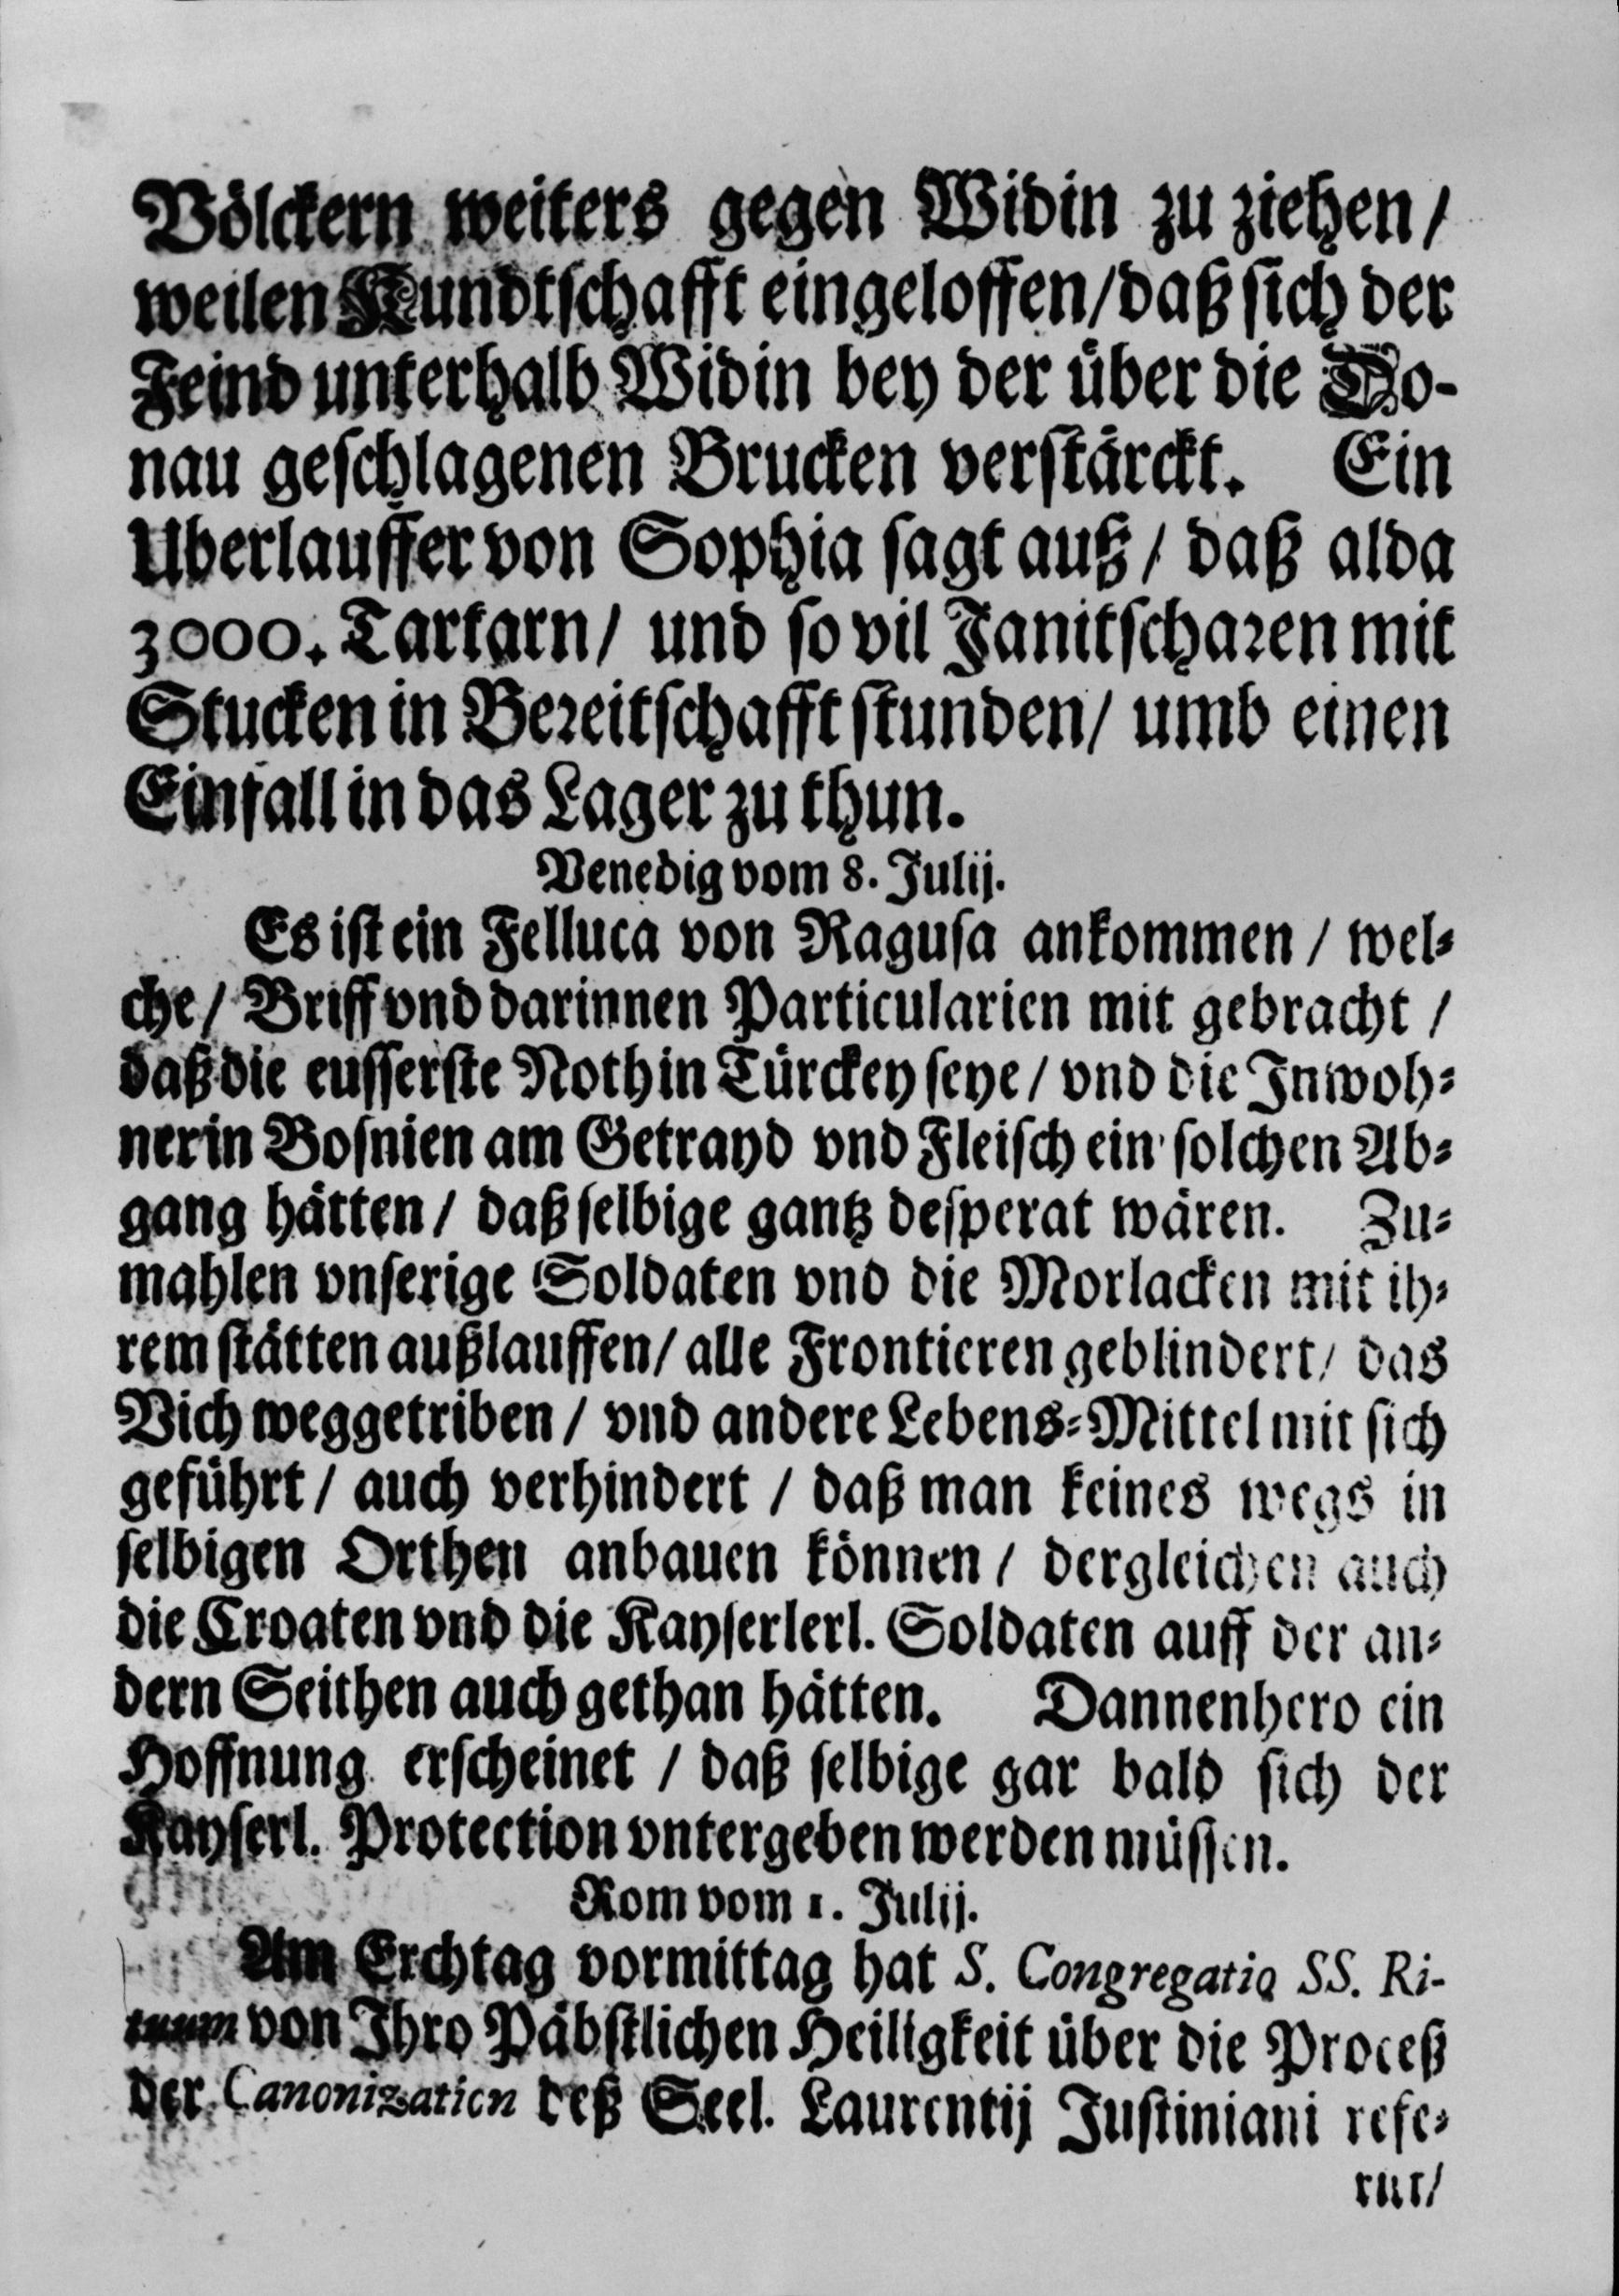 Völckern weiters gegen Widin zu ziehen/
weilen Kundtschafft eingeloffen/daß sich der
Feind unterhalb Widin bey der über die Do-
nau geschlagenen Brucken verstärckt. Ein
Uberlauffer von Sophia sagt auß/ daß alda
3000. Tartarn/ und so vil Janitscharen mit
Stucken in Bereitschafft stunden/ umb einen
Einfall in das Lager zu thun.
Venedig vom 8. Julij.
Es ist ein Felluca von Ragusa ankommen/ wel-
che/ Briff vnd darinnen Particularien mit gebracht/
daß die eusserste Noth in Türckey seye/ vnd die Inwoh-
ner in Bosnien am Getrayd vnd Fleisch ein solchen Ab-
gang hätten/ daß selbige gantz desperat wären. Zu-
mahlen vnserige Soldaten vnd die Morlacken mit ih-
rem stätten außlauffen/ alle Frontieren geblindert/ das
Vich weggetriben/ vnd andere Lebens-Mittel mit sich
geführt/ auch verhindert/ daß man keines wegs in
selbigen Orthen anbauen können/ dergleichen auch
die Croaten vnd die Kayserlerl. Soldaten auff der an-
dern Seithen auch gethan hätten. Dannenhero ein
Hoffnung erscheinet/ daß selbige gar bald sich der
Kayserl. Protection vntergeben werden müssen.
Rom vom 1. Julij.
Am Erchtag vormittag hat S. Congregatio SS. Ri-
tuum von Ihro Päbstlichen Heiligkeit über die Proceß
der Canonization deß Seel. Laurentij Justiniani refe-
rirt/